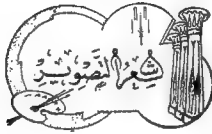 شِعرُ التَّصْوِيرِ